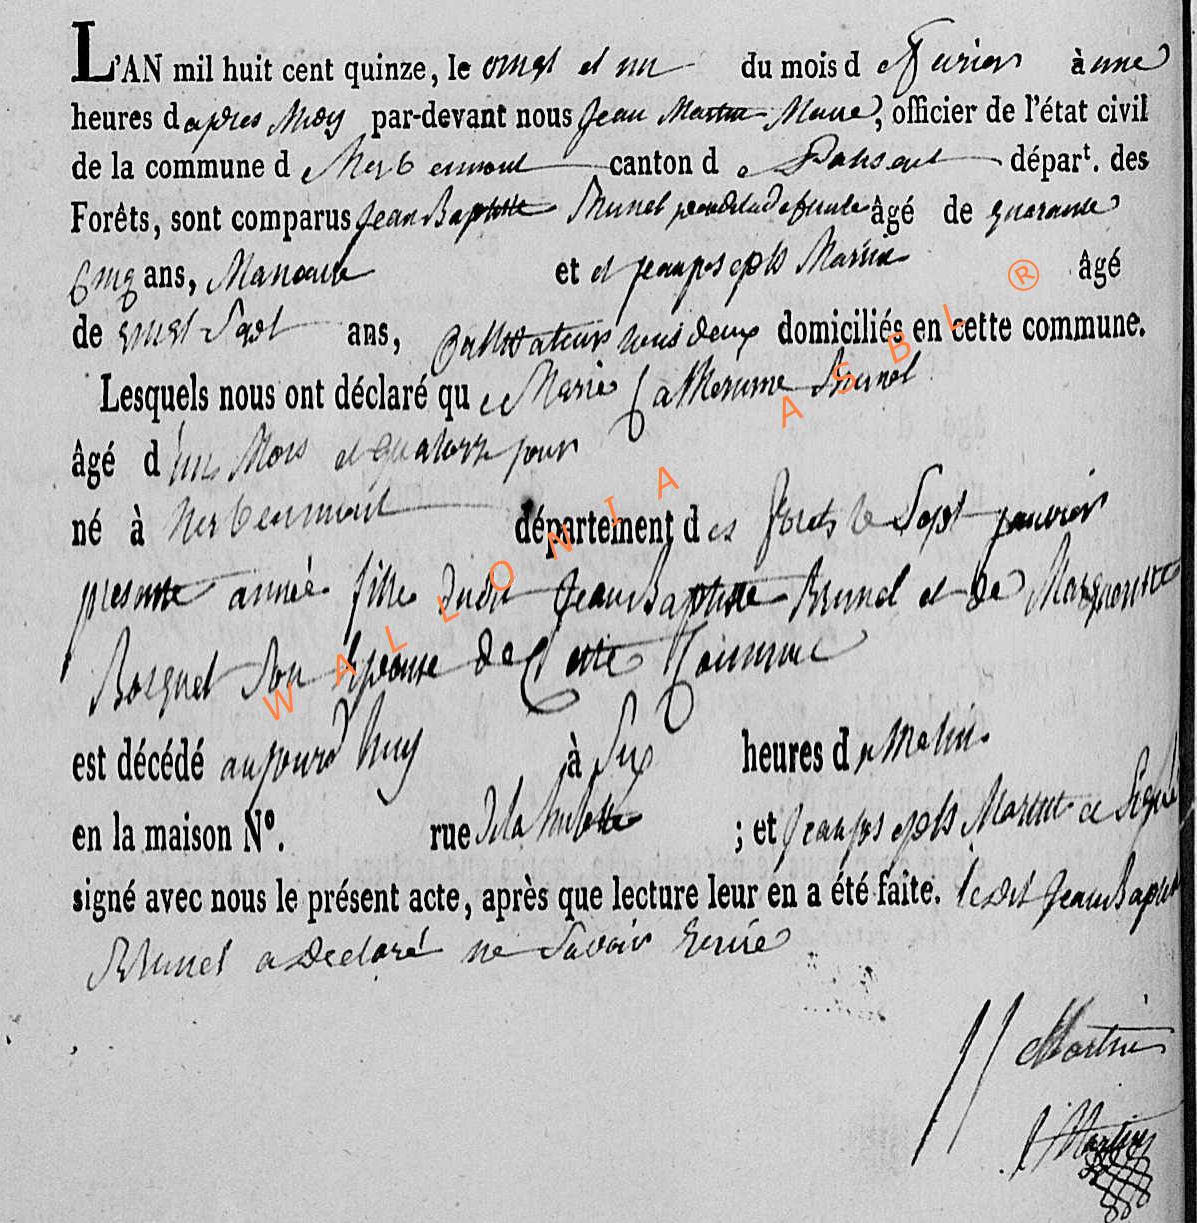 L'AN mil huit cent quinze, le vingt et un du mois de fevrier à une
heures d apres Midy par-devant nous Jean Martin Maire, officier de l'état civil
de la commune d herbeumont canton de Paliseul dépar^t. des
Forêts, sont comparus Jean Baptiste Brunel pere de la defunte âgé de quarante
Cinq ans, Manoeuvre et et jean joseph Martin âgé
de vingt Sept ans, Cultivateur tous deux domiciliés en cette commune.
Lesquels nous ont déclaré que Marie Catherinne Brunel
âgé d un Mois et quatorze jour
né à herbeumont département des forets le Sept janvier
presente année fille dudit Jean Baptiste Brunel et de Margueritte
Bosquet Son Epouse de Cette Commune
est décédé aujourd huy à Six heures du Matin
en la maison N°. rue de la hulette ; et jean joseph Martin a Signé
signé avec nous le présent acte, après que lecture leur en a été faite. ledit Jean Baptiste
Brunel a declaré ne Savoir Ecrire
JJ Martin
J Martin
WALLONIA ASBL ®